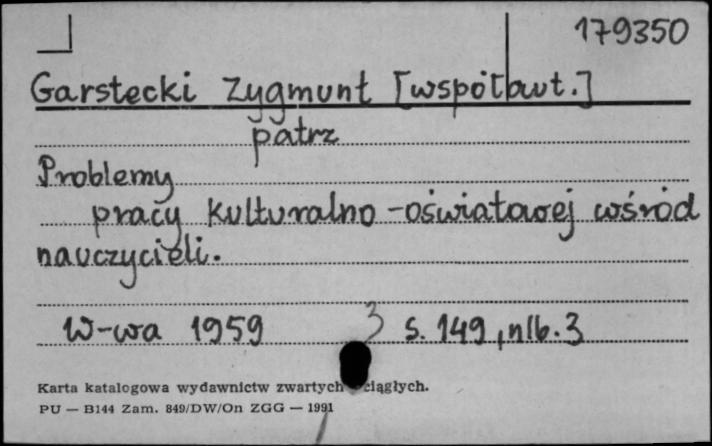 179350
Garstecki Zygmunt [współaut.]
patrz
Problemy
pracy kulturalno-oświatowej wśród
nauczycieli.
W-wa 1959 s. 149, nlb. 3
Karta katalogowa wydawnictw zwartych ciągłych.
PU — B144 Zam. 849/DW/On ZGG — 1991